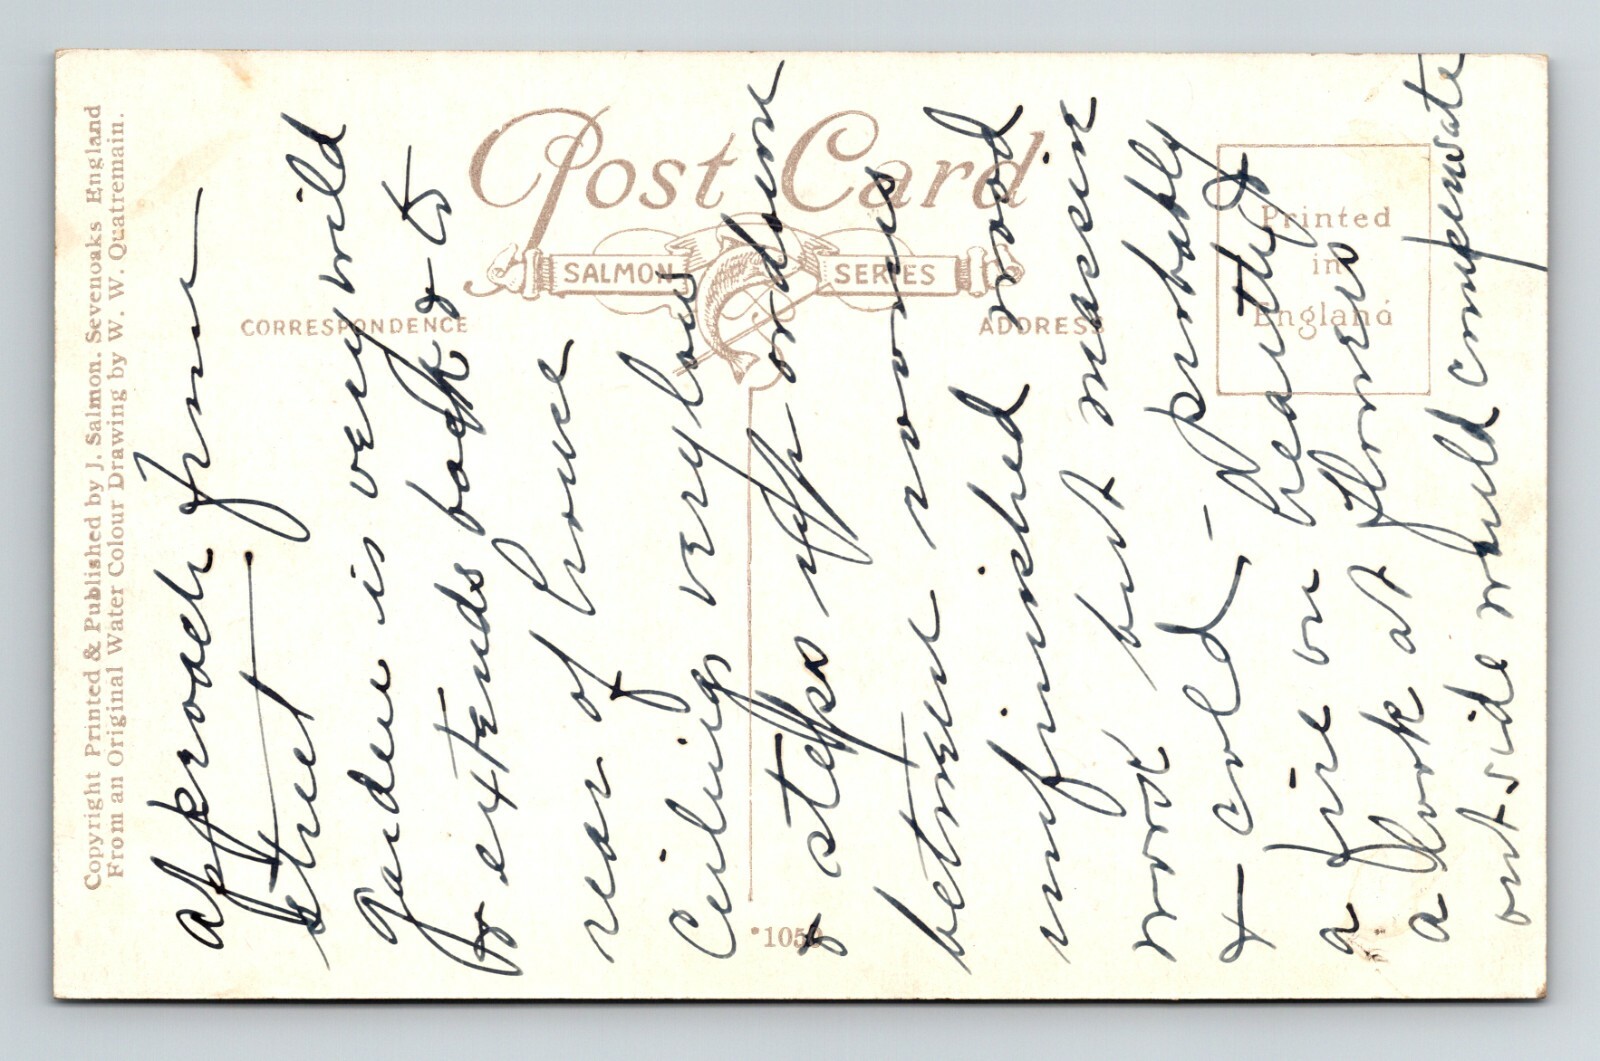 Copyright Printed & Published by J. Salmon. Sevenoaks England
From an Original Water Colour Drawing by W. W. Quatremain.
Post Card
SALMON SERIES
CORRESPONDENCE
ADDRESS
Printed
in
England
*1059
approach from
street
garden is very wild
& extends back & to
rear of house
Ceilings very low
& steps up or down
between rooms
unfinished wood
work but massive
& cold - Probably
a fire on hearth &
a look at flowers
outside would compensate